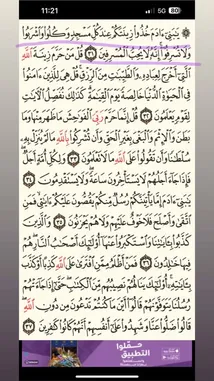 11:21
يَـٰبَنِىٓ ءَادَمَ خُذُوا۟ زِينَتَكُمْ عِندَ كُلِّ مَسْجِدٍ وَكُلُوا۟ وَٱشْرَبُوا۟
وَلَا تُسْرِفُوٓا۟ إِنَّهُۥ لَا يُحِبُّ ٱلْمُسْرِفِينَ ٣١ قُلْ مَنْ حَرَّمَ زِينَةَ ٱللَّهِ
ٱلَّتِىٓ أَخْرَجَ لِعِبَادِهِۦ وَٱلطَّيِّبَـٰتِ مِنَ ٱلرِّزْقِ قُلْ هِىَ لِلَّذِينَ ءَامَنُوا۟
فِى ٱلْحَيَوٰةِ ٱلدُّنْيَا خَالِصَةً يَوْمَ ٱلْقِيَـٰمَةِ كَذَٰلِكَ نُفَصِّلُ ٱلْـَٔايَـٰتِ
لِقَوْمٍ يَعْلَمُونَ ٣٢ قُلْ إِنَّمَا حَرَّمَ رَبِّىَ ٱلْفَوَٰحِشَ مَا ظَهَرَ مِنْهَا وَمَا
بَطَنَ وَٱلْإِثْمَ وَٱلْبَغْىَ بِغَيْرِ ٱلْحَقِّ وَأَن تُشْرِكُوا۟ بِٱللَّهِ مَا لَمْ يُنَزِّلْ بِهِۦ
سُلْطَـٰنًا وَأَن تَقُولُوا۟ عَلَى ٱللَّهِ مَا لَا تَعْلَمُونَ ٣٣ وَلِكُلِّ أُمَّةٍ أَجَلٌ
فَإِذَا جَآءَ أَجَلُهُمْ لَا يَسْتَأْخِرُونَ سَاعَةً وَلَا يَسْتَقْدِمُونَ ٣٤
يَـٰبَنِىٓ ءَادَمَ إِمَّا يَأْتِيَنَّكُمْ رُسُلٌ مِّنكُمْ يَقُصُّونَ عَلَيْكُمْ ءَايَـٰتِى فَمَنِ
ٱتَّقَىٰ وَأَصْلَحَ فَلَا خَوْفٌ عَلَيْهِمْ وَلَا هُمْ يَحْزَنُونَ ٣٥ وَٱلَّذِينَ
كَذَّبُوا۟ بِـَٔايَـٰتِنَا وَٱسْتَكْبَرُوا۟ عَنْهَآ أُو۟لَـٰٓئِكَ أَصْحَـٰبُ ٱلنَّارِ هُمْ
فِيهَا خَـٰلِدُونَ ٣٦ فَمَنْ أَظْلَمُ مِمَّنِ ٱفْتَرَىٰ عَلَى ٱللَّهِ كَذِبًا أَوْ كَذَّبَ
بِـَٔايَـٰتِهِۦٓ أُو۟لَـٰٓئِكَ يَنَالُهُمْ نَصِيبُهُم مِّنَ ٱلْكِتَـٰبِ حَتَّىٰٓ إِذَا جَآءَتْهُمْ
رُسُلُنَا يَتَوَفَّوْنَهُمْ قَالُوٓا۟ أَيْنَ مَا كُنتُمْ تَدْعُونَ مِن دُونِ ٱللَّهِ
قَالُوا۟ ضَلُّوا۟ عَنَّا وَشَهِدُوا۟ عَلَىٰٓ أَنفُسِهِمْ أَنَّهُمْ كَانُوا۟ كَـٰفِرِينَ ٣٧
حمّلوا
التطبيق